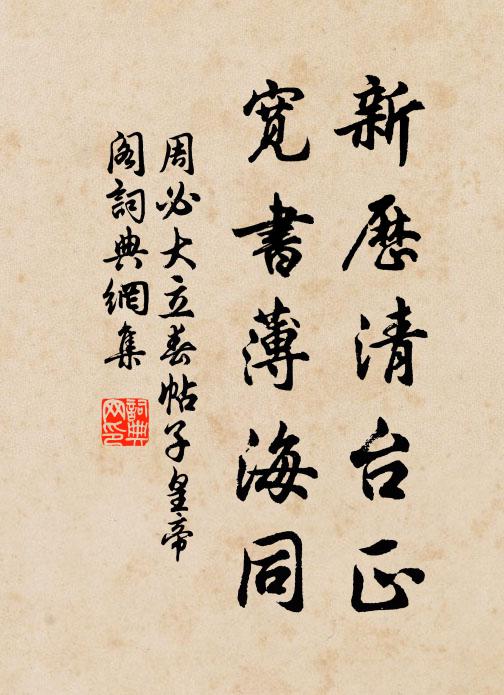 新歷清台正
寬書薄海同
周必大立春帖子皇帝
閣詞典網集
詞典网印